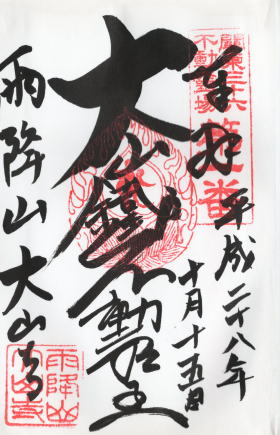 奉拝
平成二十八年
十月十五日
関東三十六
不動霊場
第一番
大山鐵不動明王
雨降山大山寺
雨降山
大山寺